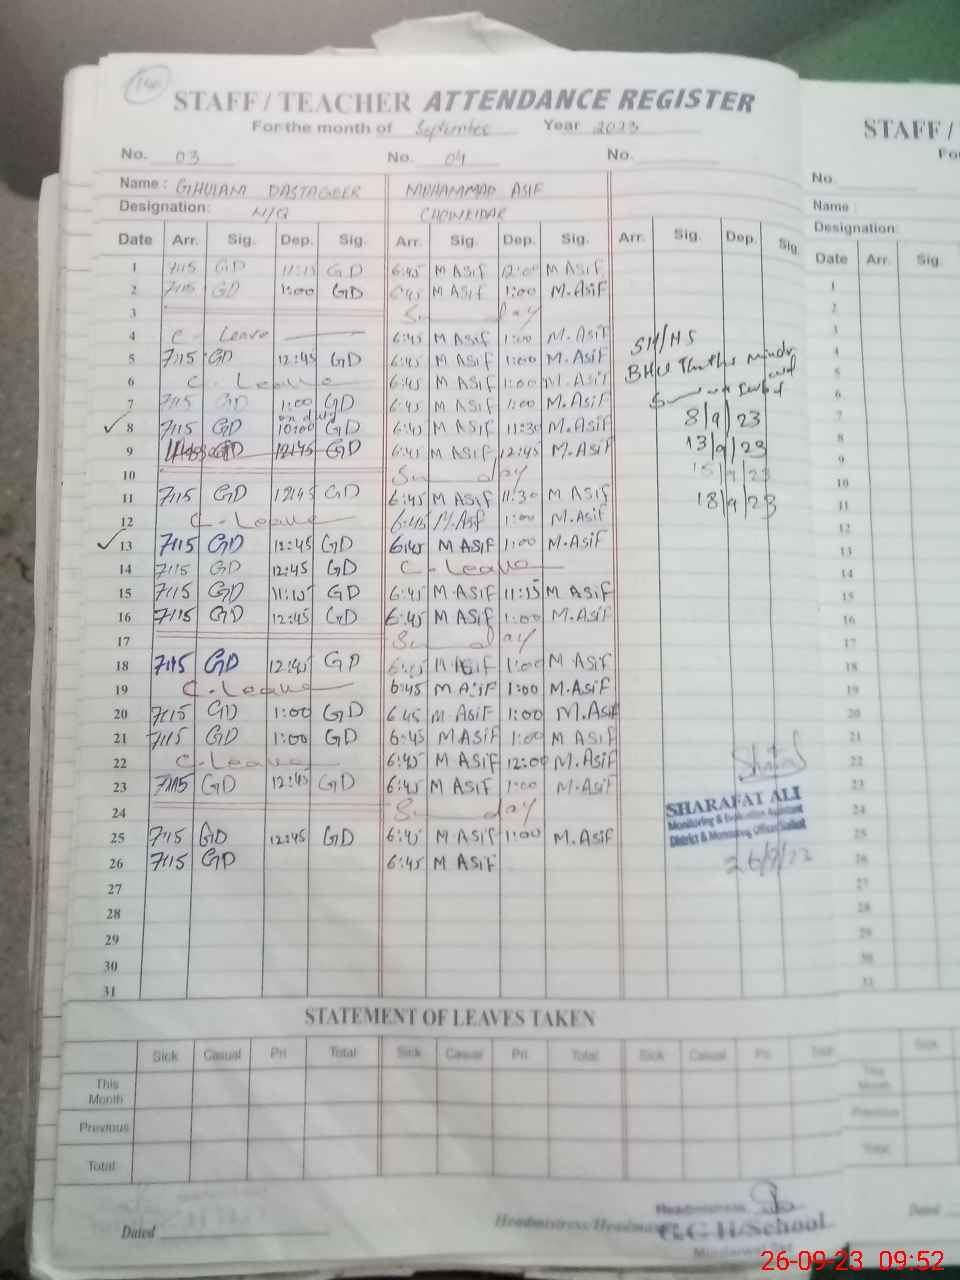 STAFF / TEACHER ATTENDANCE REGISTER
For the month of September Year 2023
No. 03 No. 04 No.
Name : GHULAM DASTAGEER MUHAMMAD ASIF
Designation: N/Q CHOWKIDAR
Date Arr. Sig. Dep. Sig. Arr. Sig. Dep. Sig. Arr. Sig. Dep. Sig.
1 7:15 GD 11:15 GD 6:45 M ASIF 12:00 M ASIF
2 7:15 GD 1:00 GD 6:45 M ASIF 1:00 M.ASIF
3 Sunday
4 C-Leave 6:45 M ASIF 1:00 M.ASIF
5 7:15 GD 12:45 GD 6:45 M ASIF 1:00 M.ASIF
6 C-Leave 6:45 M ASIF 1:00 M.ASIF
7 7:15 GD 1:00 GD 6:45 M ASIF 1:00 M.ASIF
on duty
8 7:15 GD 10:00 GD 6:45 M ASIF 11:30 M.ASIF
9 GD 12:45 GD 6:45 M ASIF 12:45 M.ASIF
10 Sunday
11 7:15 GD 12:45 GD 6:45 M ASIF 11:30 M ASIF
12 C-Leave 6:45 M.Asif 1:00 M.ASIF
13 7:15 GD 12:45 GD 6:45 M ASIF 1:00 M.ASIF
14 7:15 GD 12:45 GD C-Leave
15 7:15 GD 11:15 GD 6:45 M ASIF 11:15 M ASIF
16 7:15 GD 12:45 GD 6:45 M ASIF 1:00 M.ASIF
17 Sunday
18 7:15 GD 12:45 GD 6:45 M ASIF 1:00 M ASIF
19 C-Leave 6:45 M ASIF 1:00 M.ASIF
20 7:15 GD 1:00 GD 6:45 M ASIF 1:00 M.ASIF
21 7:15 GD 1:00 GD 6:45 M.ASIF 1:00 M ASIF
22 C-Leave 6:45 M ASIF 12:00 M.ASIF
23 7:15 GD 12:45 GD 6:45 M ASIF 1:00 M.ASIF
24 Sunday
25 7:15 GD 12:45 GD 6:45 M ASIF 1:00 M.ASIF
26 7:15 GD 6:45 M ASIF
27
28
29
30
31
SH/NS
BHU
8/9/23
13/9/23
15/9/23
18/9/23
SHARAFAT ALI
Monitoring & Evaluation Assistant
District & Monitoring Officer
26/9/23
STATEMENT OF LEAVES TAKEN
Sick Casual Pri. Total Sick Casual Pri. Total Sick Casual Pri. Total
This Month
Previous
Total
Dated
Headmistress/Headmaster
Headmistress
G.G.H/School
STAFF /
No.
Name :
Designation:
Date Arr. Sig.
1
2
3
4
5
6
7
8
9
10
11
12
13
14
15
16
17
18
19
20
21
22
23
24
25
26
27
28
29
30
31
Sick
This Month
Previous
Total
Dated
26-09-23 09:52